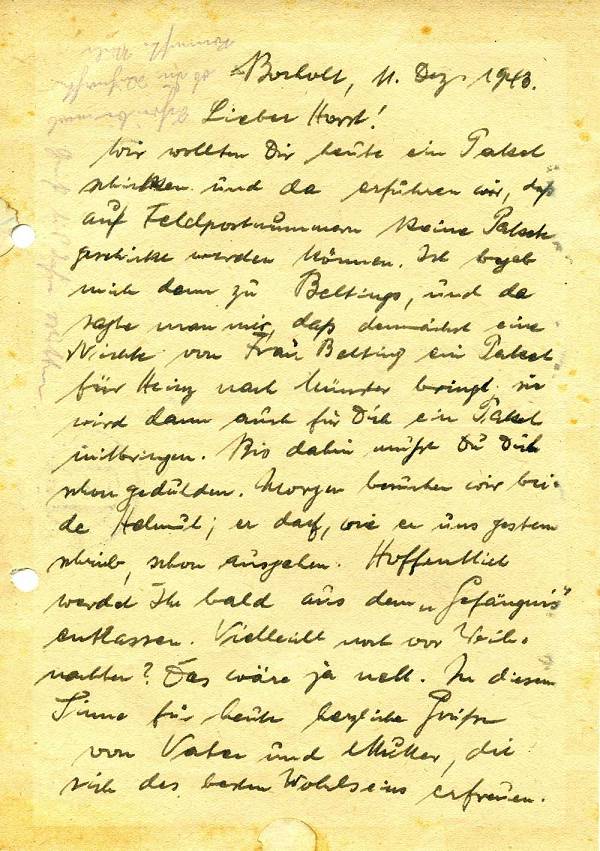 Bocholt, 11. Dez. 1943.
Lieber Horst!
Wir wollten Dir heute ein Paket
schicken und da erfuhren wir, daß
auf Feldpostnummern keine Pakete
geschickt werden können. Ich begab
mich dann zu Beltings, und da
sagte man mir, daß demnächst eine
Nichte von Frau Belting ein Paket
für Heinz nach Münster bringt. Sie
wird dann auch für Dich ein Paket
mitbringen. Bis dahin mußt Du Dich
schon gedulden. Morgen besuchen wir bei-
de Helmut; er darf, wie er uns gestern
schrieb, schon ausgehen. Hoffentlich
werdet Ihr bald aus dem „Gefängnis"
entlassen. Vielleicht noch vor Weih-
nachten? Das wäre ja nett. In diesem
Sinne für heute herzliche Grüße
von Vater und Mutter, die
sich des besten Wohlseins erfreuen.